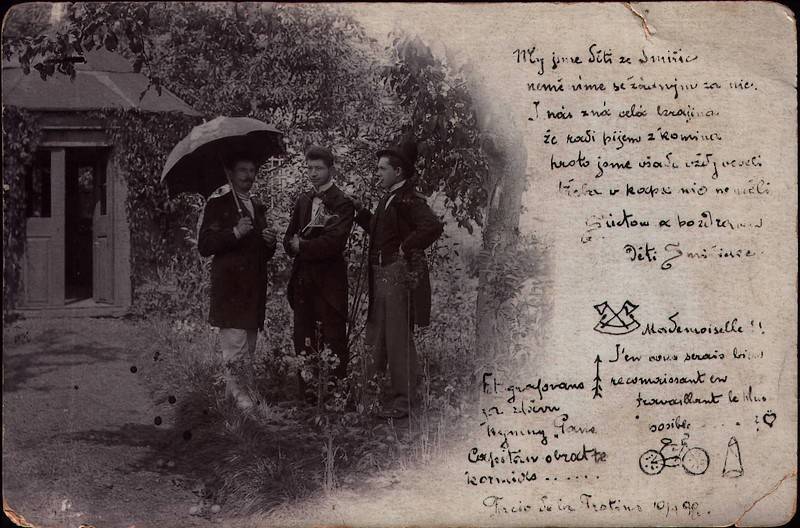 My jsme děti ze Smiřic
neměníme se žádným za nic.
I nás zná celá krajina
že radi pijem z komína
proto jsme všade vždy veseli
třeba v kapse nic neměli
S úctou a pozdravem
Děti Smiřické
Mademoiselle!!
J'en vous serais bien
recomaissant en
travaillant le plus
posible
Fotografováno
za zdění
hymny
Capitán obratte
kormidlo......